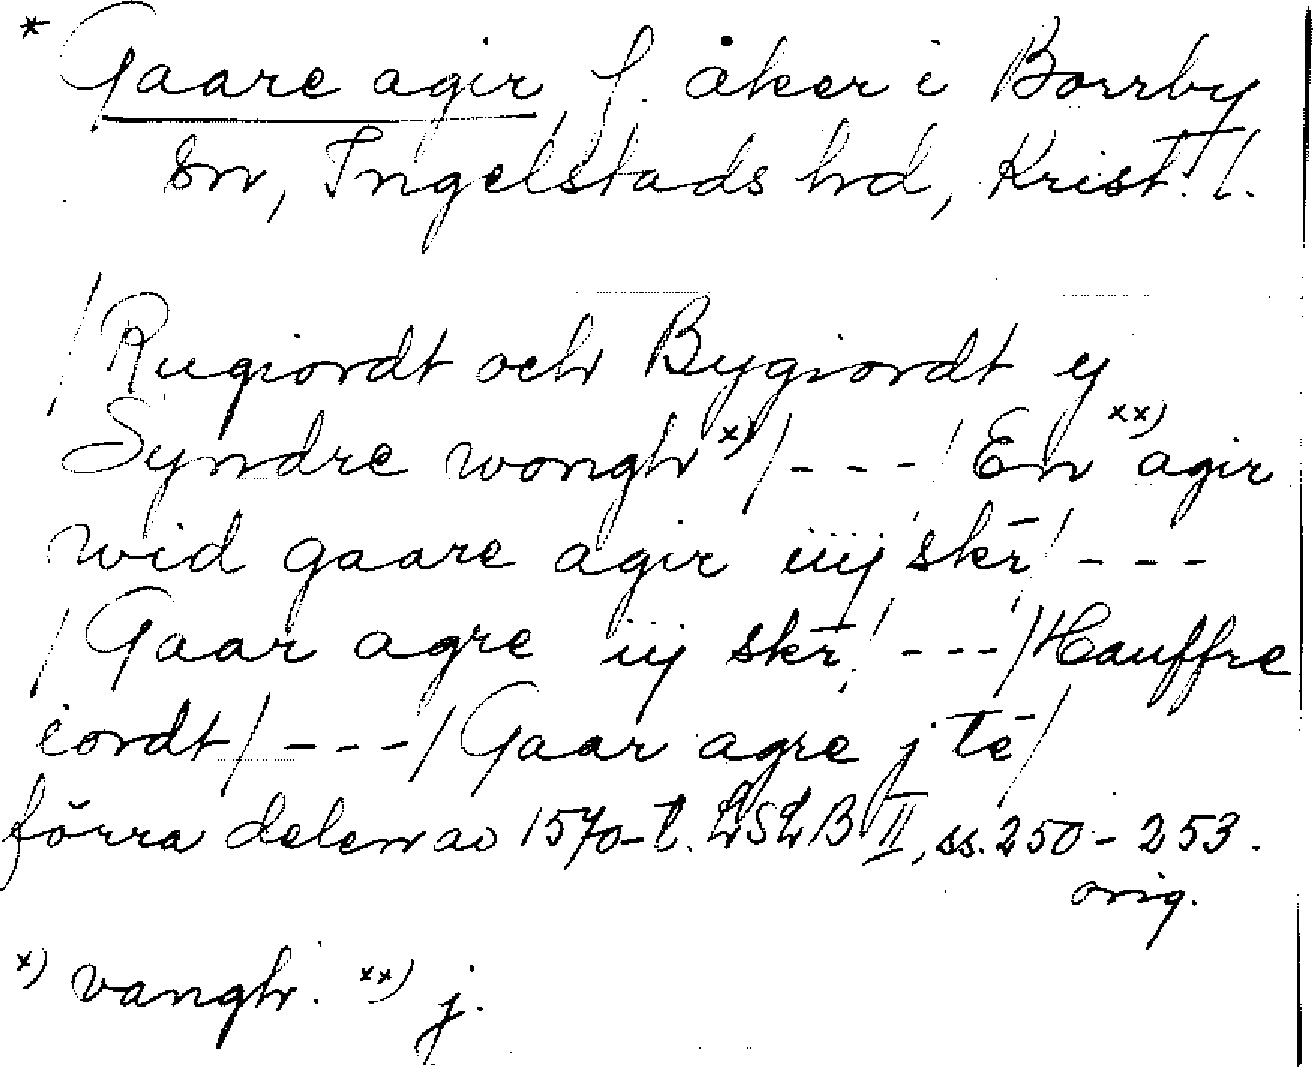 * Gaare agir, f. åker i Borrby
sn, Ingelstads hd, Krist. l.
/Rugiordt och Bygiordt ij
Syndre wongh x)/ - - - / En xx) agir
wid gaare agir iiij skr̄ / - - -
/ Gaar agre iij skr̄ / - - - / Hauffre
iordt / - - - / Gaar agre j tē /
förra delen av 1570-t. LSLB II, ss. 250 - 253.
orig.
x) vangh. xx) j.